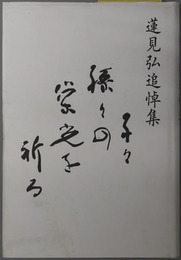 蓮見弘追悼集
子々
孫々の
栄光を
祈る